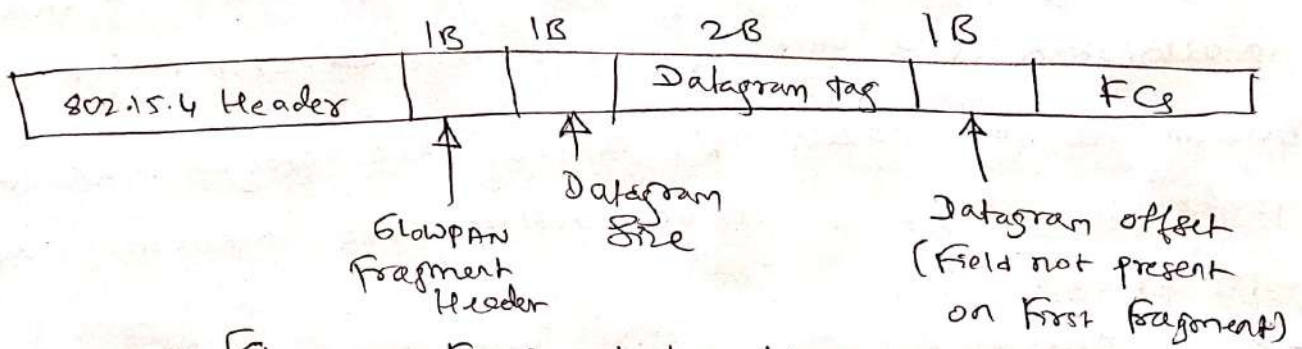 1B 1B 2B 1B
802.15.4 Header Datagram tag FCS
6LOWPAN Fragment Header
Datagram Size
Datagram offset
(Field not present
on First fragment)